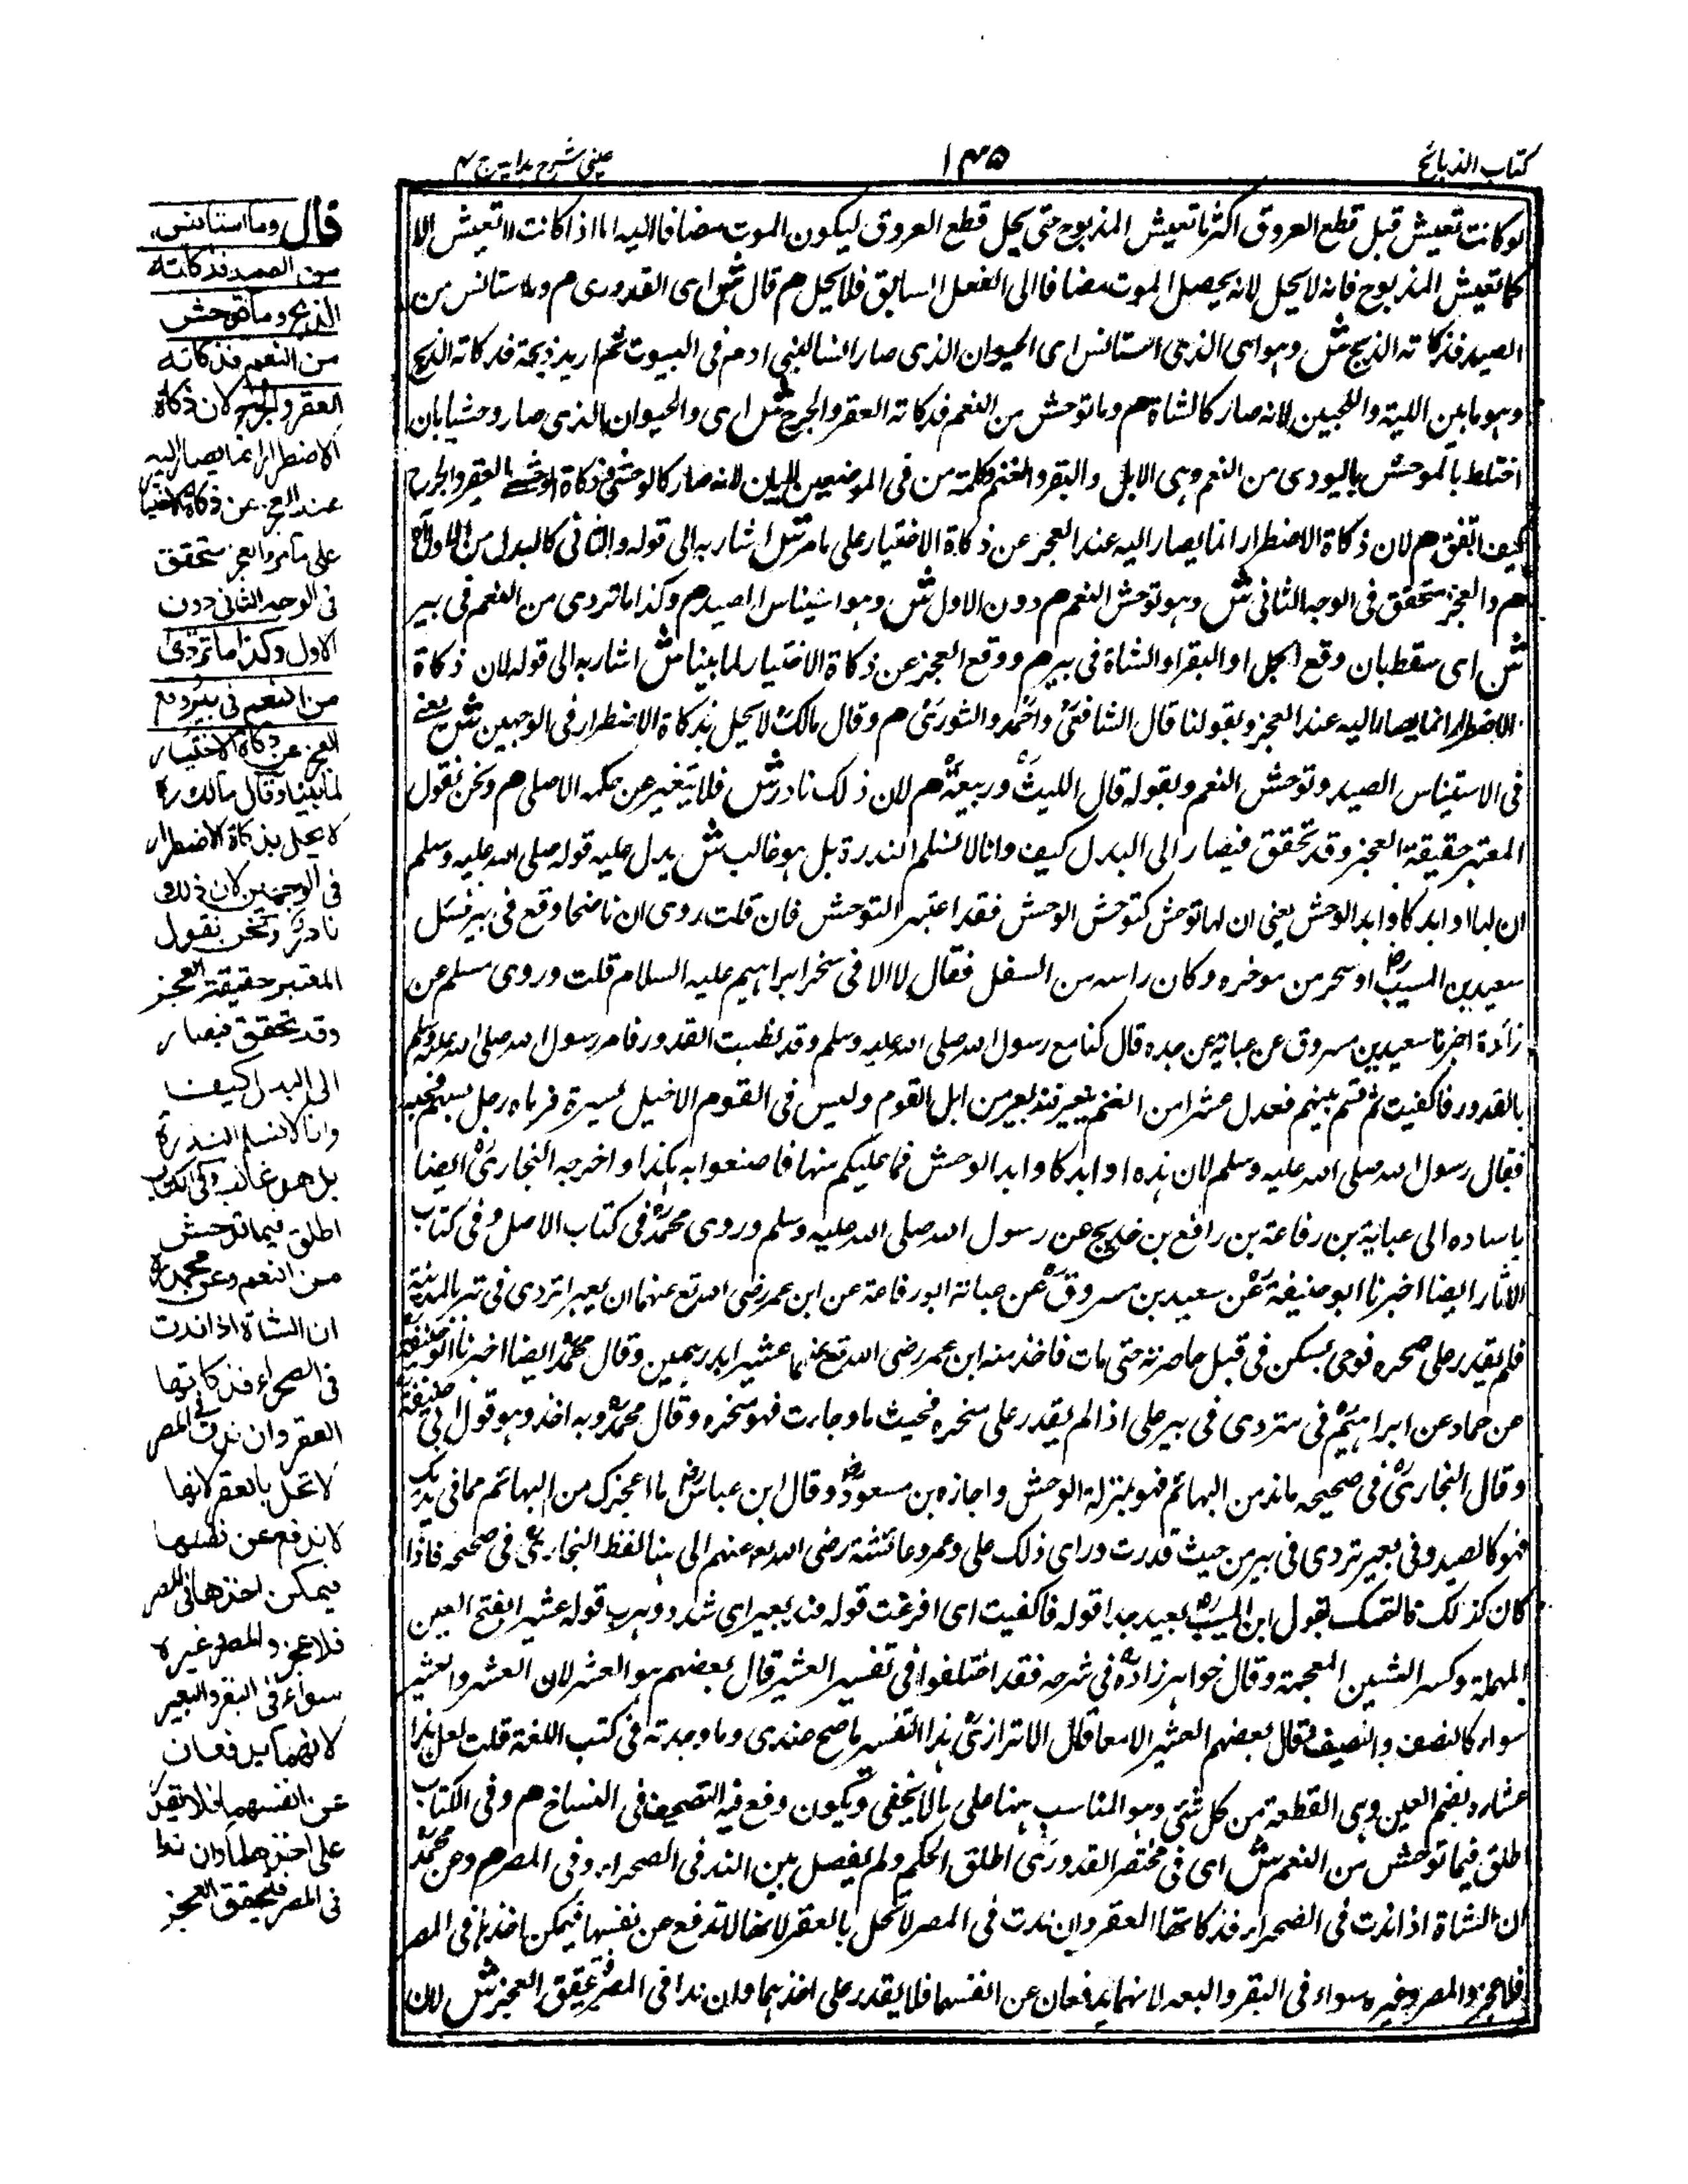 كتاب الذبائح
١٣٥
عينى شرح هدايه ج ٤
لو كانت تعيش قبل قطع العروق اكثر ما تعيش المذبوح حتى يحل قطع العروق ليكون الموت مضافا اليه اما اذا كانت لا تعيش الا
كما تعيش المذبوح فانه لا يحل لانه يحصل الموت مضافا الى الفعل السابق فلا يحل م قال ش اى القدورى م وما استانس من
الصيد فذكاته الذبح ش وهو اى الذى استانس اى الحيوان الذى صار انسا لبنى ادم فى البيوت ثم اريد ذبحه فذكاته الذبح
وهو ما بين اللبة واللحيين لانه صار كالشاة م وما توحش من النعم فذكاته العقر والجرح ش اى والحيوان الذى صار وحشيا بان
اختلط بالموحش من النعم وهى الابل والبقر والغنم وكلمة من فى الموضعين للبيان لانه صار كالوحشى فذكاة الوحشى العقر والجرح
كيف اتفق م لان ذكاة الاضطرار انما يصار اليه عند العجز عن ذكاة الاختيار على ما مر ش اشار به الى قوله والثانى كالبدل من الاول
م والعجز متحقق فى الوجه الثانى ش وهو توحش النعم م دون الاول ش وهو استيناس الصيد م وكذا ما تردى من النعم فى بير
ش اى سقط بان وقع الجمل او البقر او الشاة فى بير م ووقع العجز عن ذكاة الاختيار لما بينا ش اشار به الى قوله لان ذكاة
الاضطرار انما يصار اليه عند العجز وبقولنا قال الشافعى واحمد والثورى م وقال مالك لا يحل بذكاة الاضطرار فى الوجهين ش يعنى
فى الاستيناس الصيد وتوحش النعم وبقوله قال الليث وربيعة م لان ذلك نادر ش فلا يتغير عن حكمه الاصلى م ونحن نقول
المعتبر حقيقة العجز وقد تحقق فيصار الى البدل كيف وانا لا نسلم الندرة بل هو غالب ش يدل عليه قوله صلى الله عليه وسلم
ان لها اوابد كاوابد الوحش يعنى ان لها توحش كتوحش الوحش فقد اعتبر التوحش فان قلت روى ان ناضحا وقع فى بير فسئل
سعيد بن المسيب او نحر من موخره وكان راسه من السفل فقال لا الا فى نحر ابراهيم عليه السلام قلت وروى مسلم عن
زائدة اخبرنا سعيد بن مسروق عن عباية عن جده قال كنا مع رسول الله صلى الله عليه وسلم وقد نصبت القدور فامر رسول الله صلى الله عليه وسلم
بالقدور فاكفيت ثم قسم بينهم فعدل عشرا من الغنم ببعير فند بعير من ابل القوم وليس فى القوم الا خيل يسيرة فرماه رجل بسهم فحبسه
فقال رسول الله صلى الله عليه وسلم ان لهذه اوابد كاوابد الوحش فما غلبكم منها فاصنعوا به هكذا واخرجه البخارى ايضا
باسناده الى عباية بن رفاعة بن رافع بن خديج عن رسول الله صلى الله عليه وسلم وروى محمد فى كتاب الاصل وفى كتاب
الاثار ايضا اخبرنا ابو حنيفة عن سعيد بن مسروق عن عباية ابو رفاعة عن ابن عمر رضى الله تع عنهما ان بعيرا تردى فى بير بالمدينة
فلم يقدر على نحره فوجى بسكين فى قبل خاصرته حتى مات فاخذ منه ابن عمر رضى الله تع عنهما عشيرا بدرهمين وقال محمد ايضا اخبرنا ابو حنيفة
عن حماد عن ابراهيم فى متردى فى بير على اذا لم يقدر على نحره فحيث ما وجات فهو نحره وقال محمد وبه اخذ وهو قول ابى حنيفة
وقال البخارى فى صحيحه ما ند من البهائم فهو بمنزلة الوحش واجازه بن مسعود وقال ابن عباس ما اعجزك من البهائم مما فى يديك
فهو كالصيد وفى بعير تردى فى بير من حيث قدرت وراى ذلك على وعمر وعائشة رضى الله تع عنهم الى هنا لفظ البخارى فى صحيحه فاذا
كان كذلك فالتمسك بقول ابن المسيب بعيد جدا قوله فاكفيت اى افرغت قوله فند بعير اى شرد وهرب قوله عشيرا بفتح العين
المهملة وكسر الشين المعجمة وقال خواهر زاده فى شرحه فقد اختلفوا فى تفسير العشير قال بعضهم هو العشر لان العشر والعشير
سواء كالنصف والنصيف وقال بعضهم العشير الامعا قال الاترازى هذا التفسير ما صح عندى وما وجدته فى كتب اللغة قلت لعل هذا
عشاره بضم العين وهى القطعة من كل شئ وهو المناسب هنا على ما لا يخفى ويكون وقع فيه التصحيف فى النساخ م وفى الكتاب
اطلق فيما توحش من النعم ش اى فى مختصر القدورى اطلق الحكم ولم يفصل بين الند فى الصحراء وفى المصر م وعن محمد
ان الشاة اذا ندت فى الصحراء فذكاتها العقر وان ندت فى المصر لا تحل بالعقر لانها لا تدفع عن نفسها فيمكن اخذها فى المصر
فلا عجز والمصر وغيره سواء فى البقر والبعير لانهما يدفعان عن انفسهما فلا يقدر على اخذهما وان ندا فى المصر فيتحقق العجز ش لان
قال وما استانس
من الصيد فذكاته
الذبح وما توحش
من النعم فذكاته
العقر والجرح لان ذكاة
الاضطرار انما يصار اليه
عند العجز عن ذكاة الاختيار
على ما مر والعجز متحقق
فى الوجه الثانى دون
الاول وكذا ما تردى
من النعم فى بير ووقع
العجز عن ذكاة الاختيار
لما بينا وقال مالك رح
لا يحل بذكاة الاضطرار
فى الوجهين لان ذلك
نادر ونحن نقول
المعتبر حقيقة العجز
وقد تحقق فيصار
الى البدل كيف
وانا لا نسلم الندرة
بل هو غالب وفى الكتاب
اطلق فيما توحش
من النعم وعن محمد رح
ان الشاة اذا ندت
فى الصحراء فذكاتها
العقر وان ندت فى المصر
لا تحل بالعقر لانها
لا تدفع عن نفسها
فيمكن اخذها فى المصر
فلا عجز والمصر وغيره
سواء فى البقر والبعير
لانهما يدفعان
عن انفسهما فلا يقدر
على اخذهما وان ندا
فى المصر فيتحقق العجز